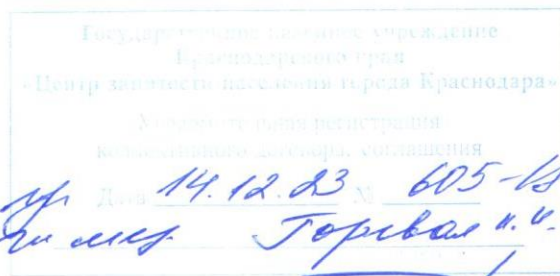 Государственное казенное учреждение
Краснодарского края
«Центр занятости населения города Краснодара»
Уведомительная регистрация
коллективного договора, соглашения
Дата 14.12.23 № 605-